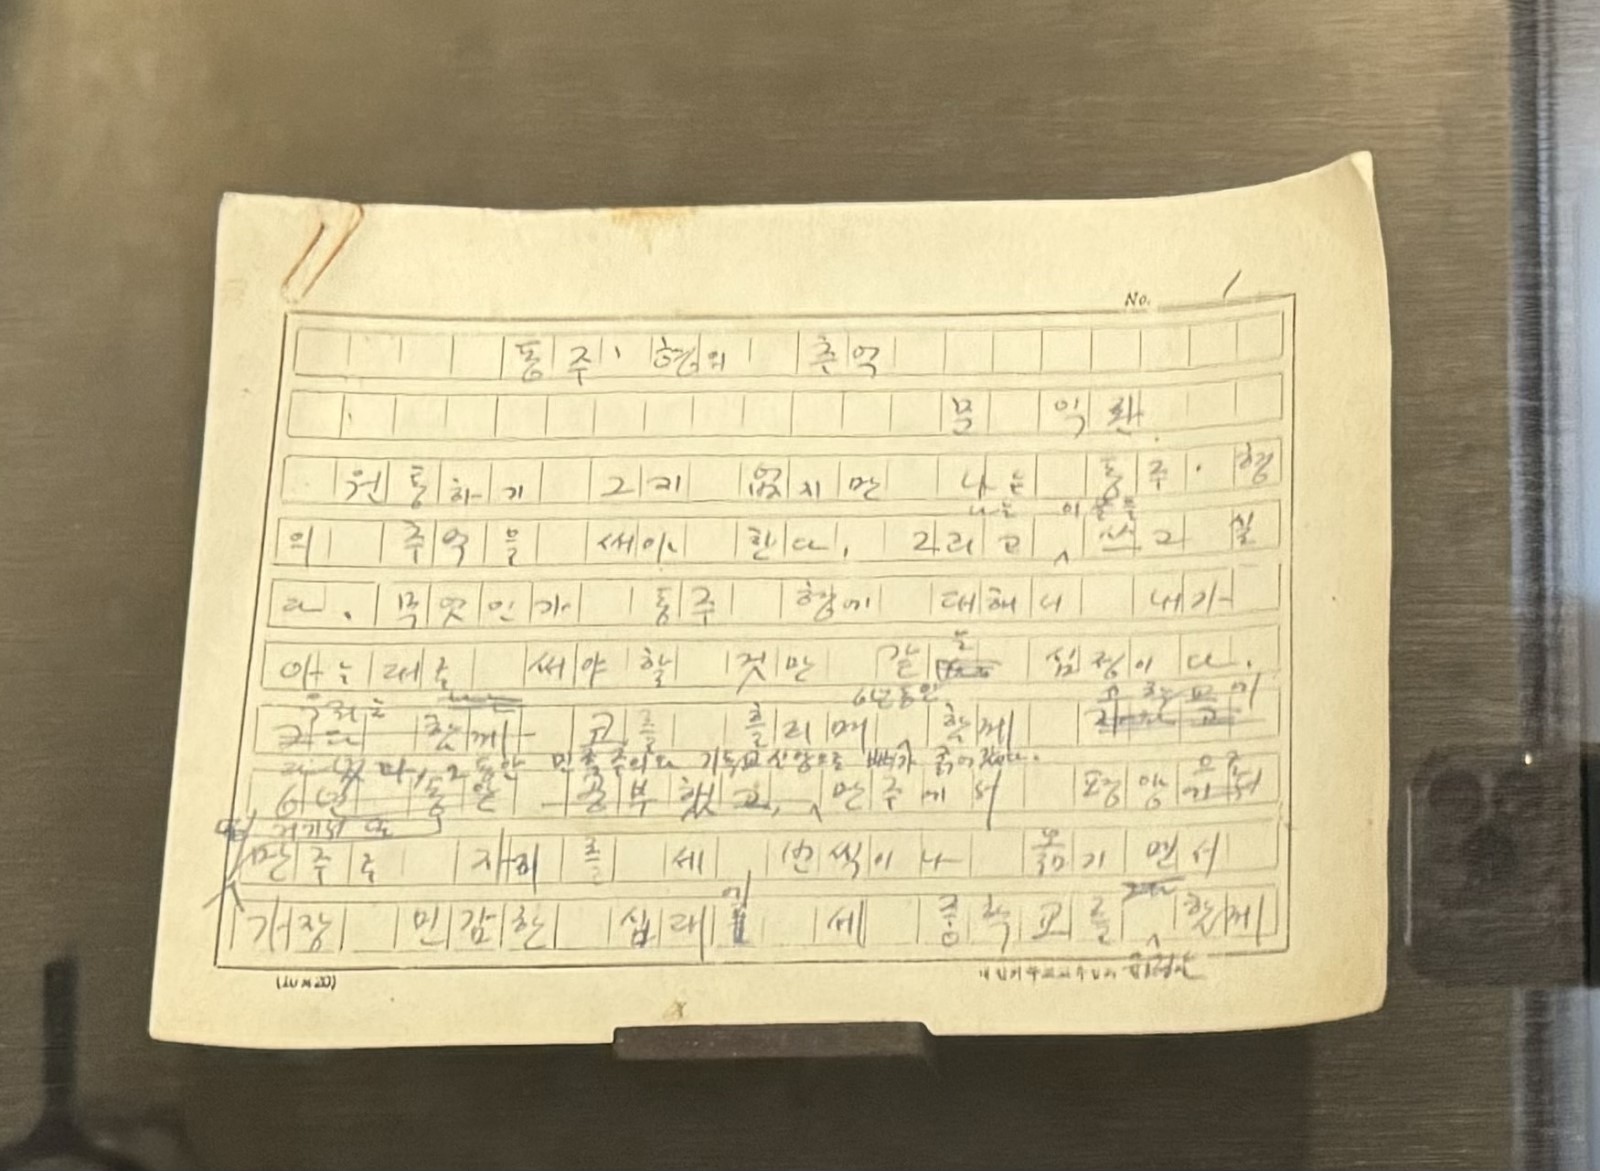 No. 1
동주 형의 추억
문 익환
원통하기 그지 없지만 나는 동주 형
나는 이 글을
의 추억을 써야 한다. 그리고 쓰고 싶
다. 무엇인가 동주 형에 대해서 내가
아는 대로 써야 할 것만 같은 심정이다.
우리는
6년동안
함께 코를 흘리며 함께
민족주의와 기독교 신앙으로 뼈가 굵어갔다.
6년 동안 공부했고, 만주에서 평양으로
거기서 또
만주로 자리를 세 번씩이나 옮기면서
가장 민감한 십대에 세 중학교를 함께
(10×20)